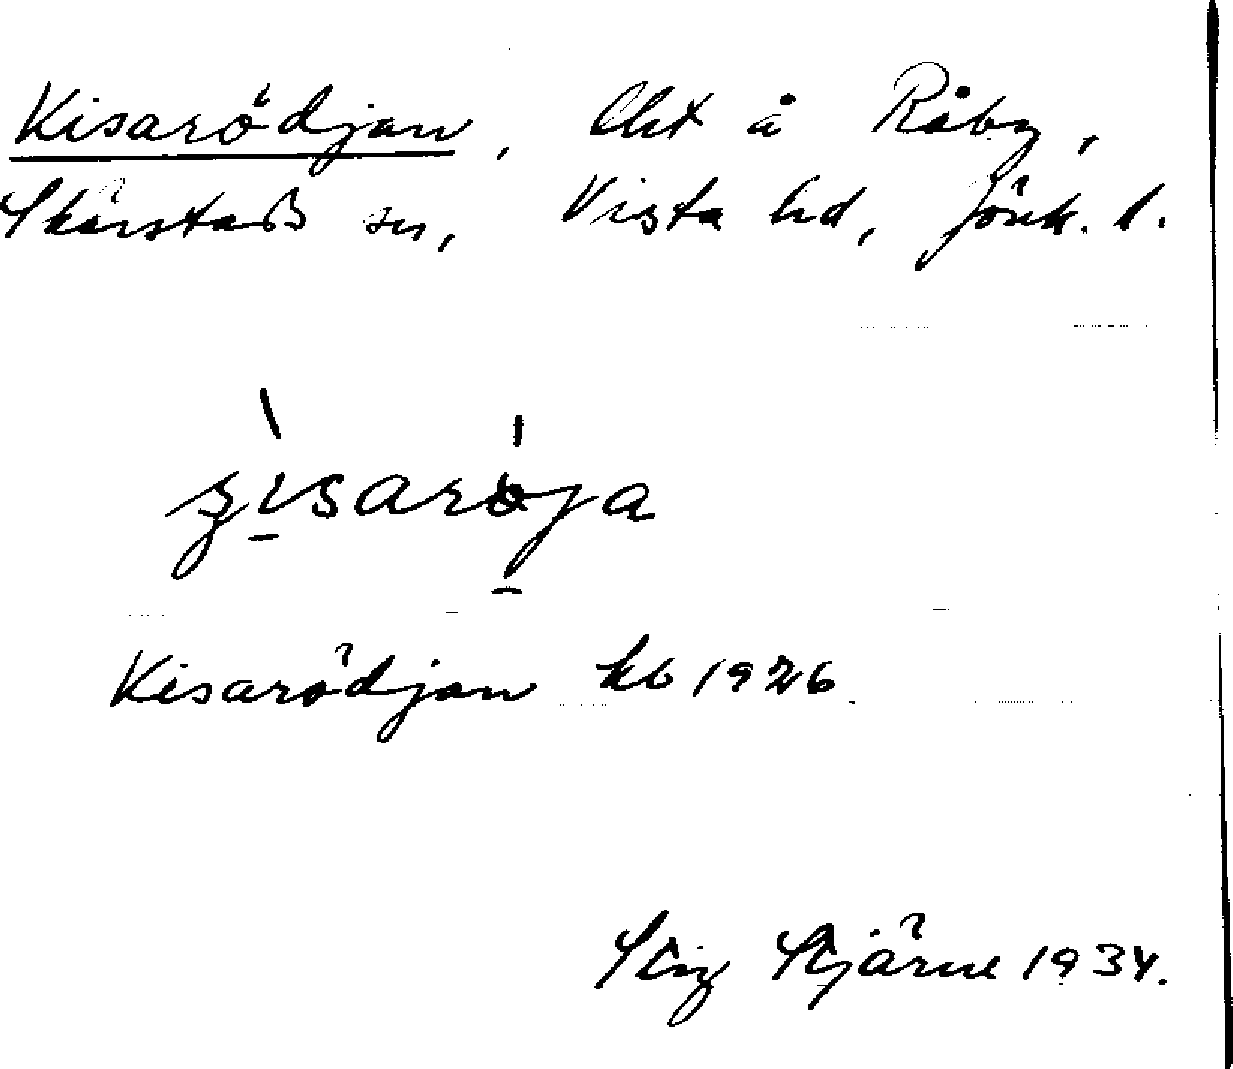 Kisarödjan, Lht å Råby,
Skärstads sn, Vista hd, Jönk. l.
Kisarödjan kb 1926
Stig Stjärne 1934.